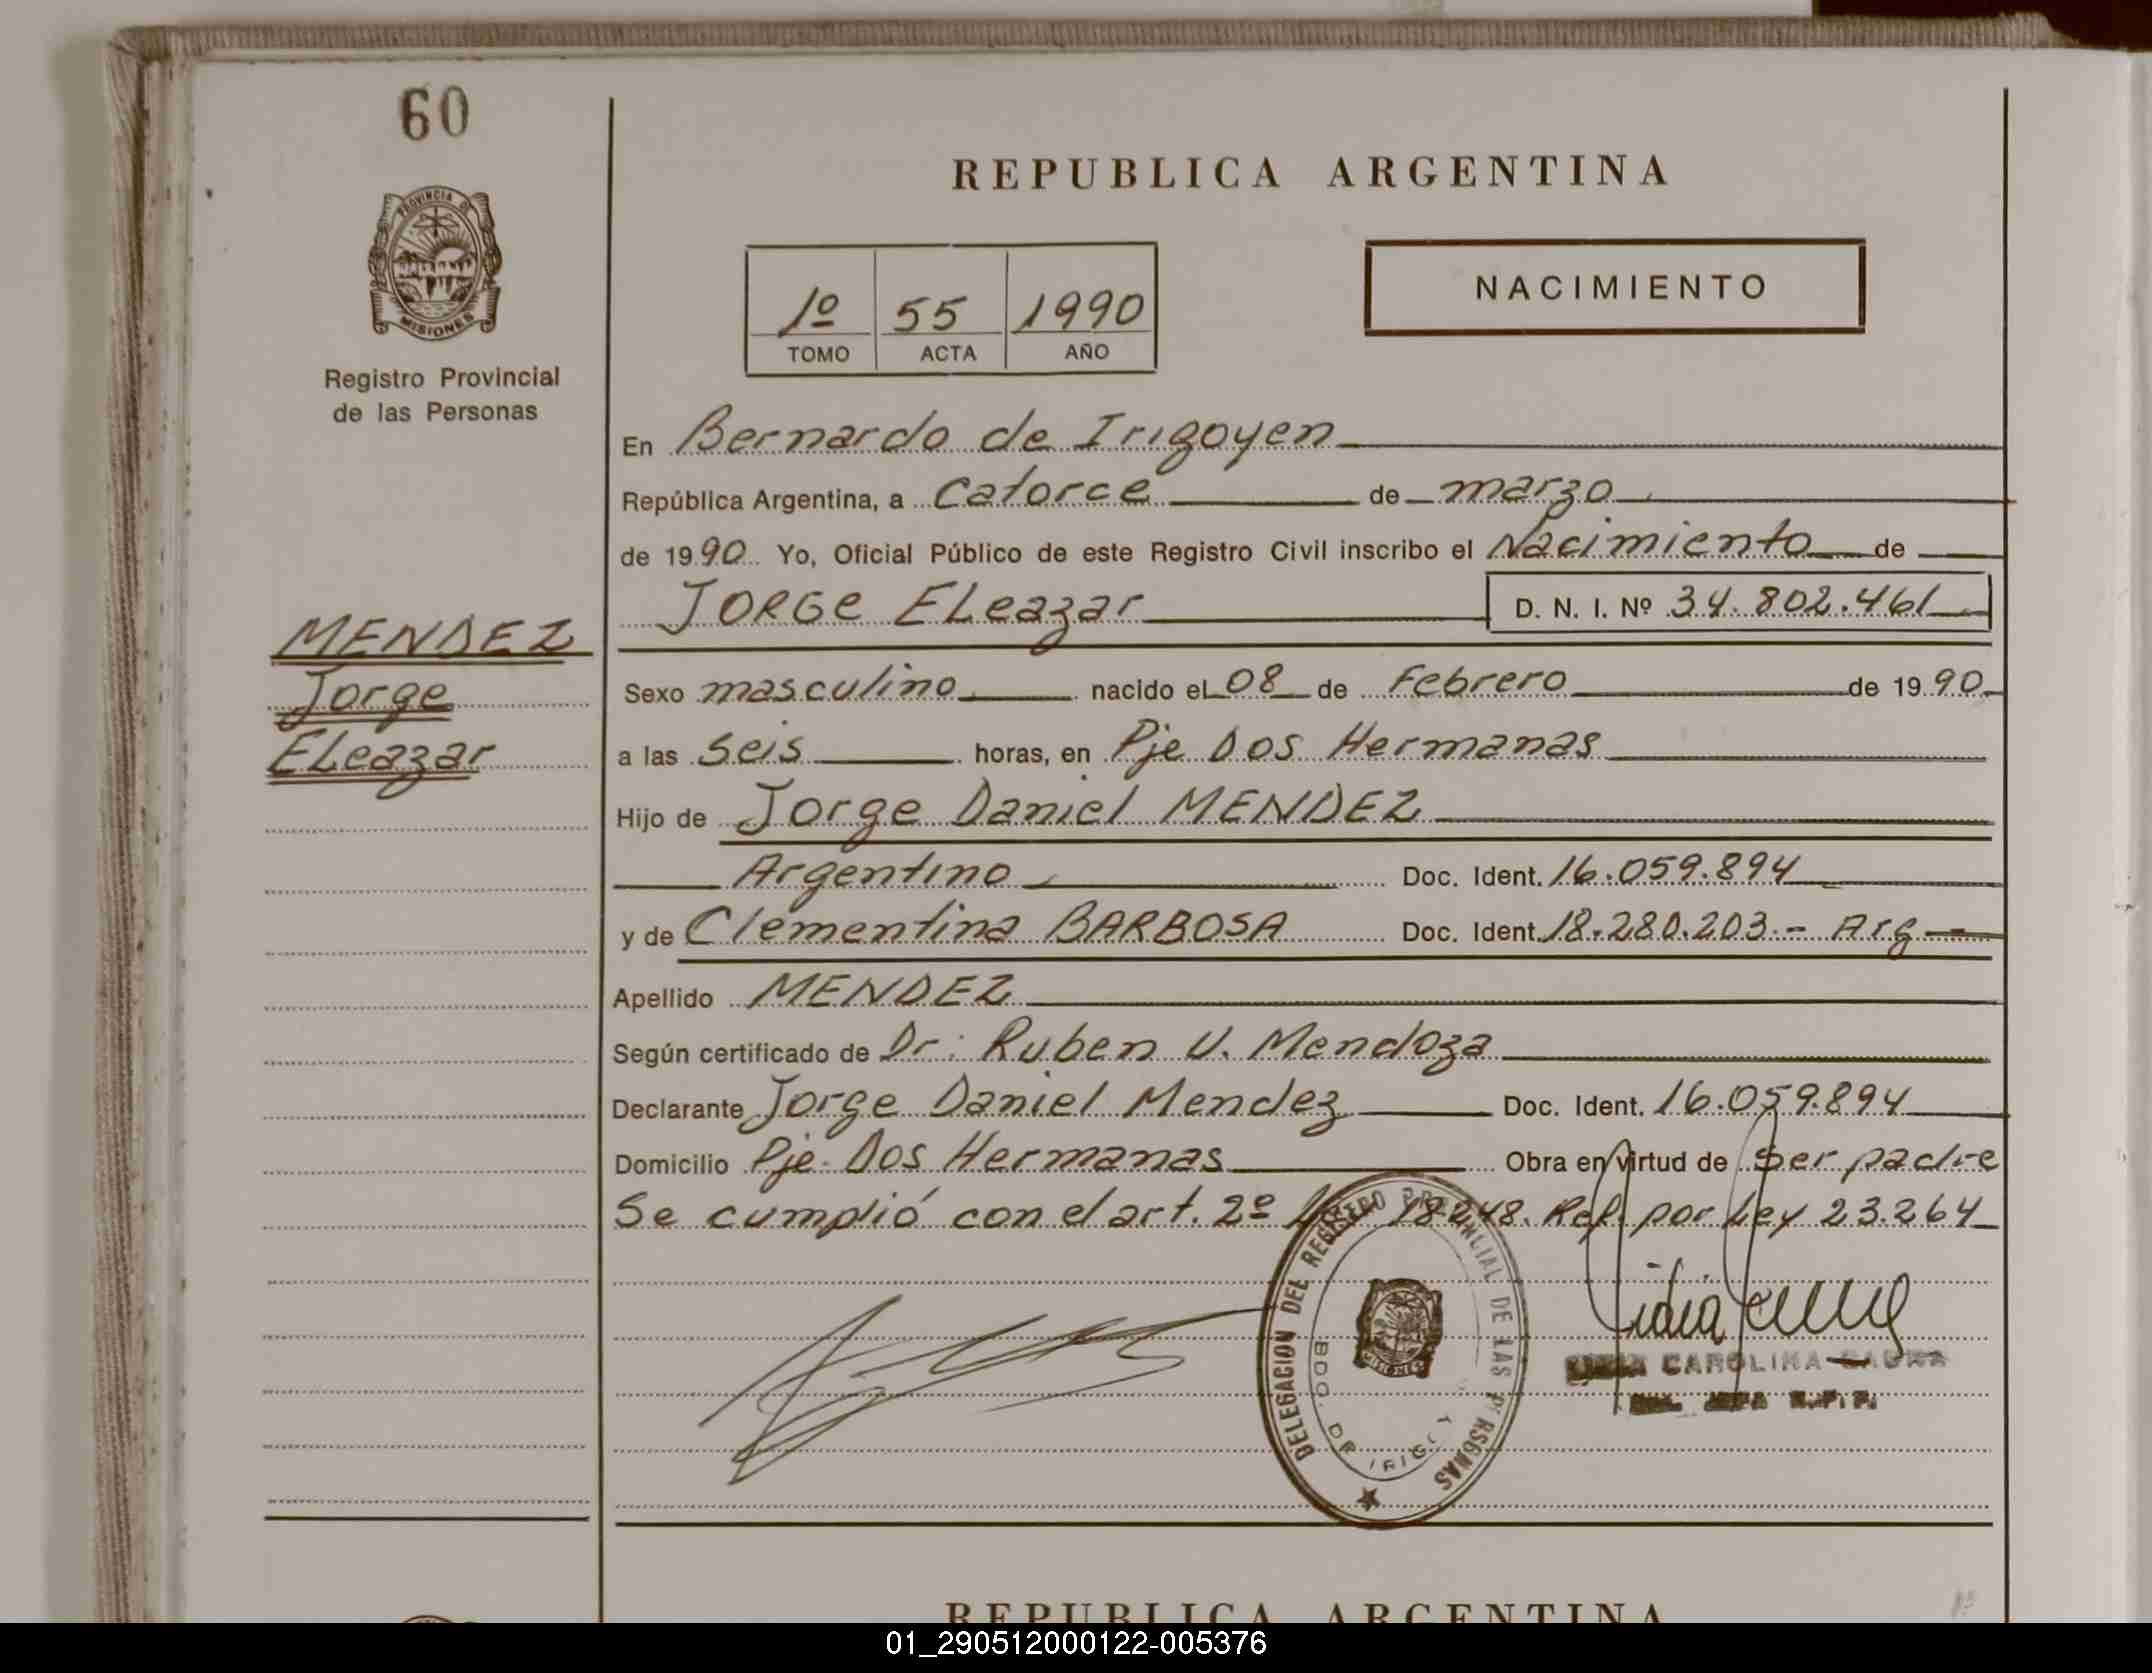 60
REPUBLICA ARGENTINA
PROVINCIA DE
MISIONES
Registro Provincial
de las Personas
1º 55 1990
TOMO ACTA AÑO
NACIMIENTO
En Bernardo de Irigoyen
República Argentina, a Catorce de marzo
de 1990 Yo, Oficial Público de este Registro Civil inscribo el Nacimiento de
JORGE ELeazar D. N. I. Nº 34.802.461
MENDEZ
Jorge
ELeazar
Sexo masculino nacido el 08 de Febrero de 1990
a las Seis horas, en Pje Dos Hermanas
Hijo de Jorge Daniel MENDEZ
Argentino Doc. Ident. 16.059.894
y de Clementina BARBOSA Doc. Ident. 18.280.203.- Arg
Apellido MENDEZ
Según certificado de Dr. Ruben U. Mendoza
Declarante Jorge Daniel Mendez Doc. Ident. 16.059.894
Domicilio Pje. Dos Hermanas Obra en virtud de Ser padre
Se cumplió con el art. 2º 18248. Ref. por Ley 23.264
DELEGACION DEL REGISTRO PROVINCIAL DE LAS PERSONAS
BDO. DE IRIGOY
MISIONES
CAROLINA
REPUBLICA ARGENTINA
01_290512000122-005376